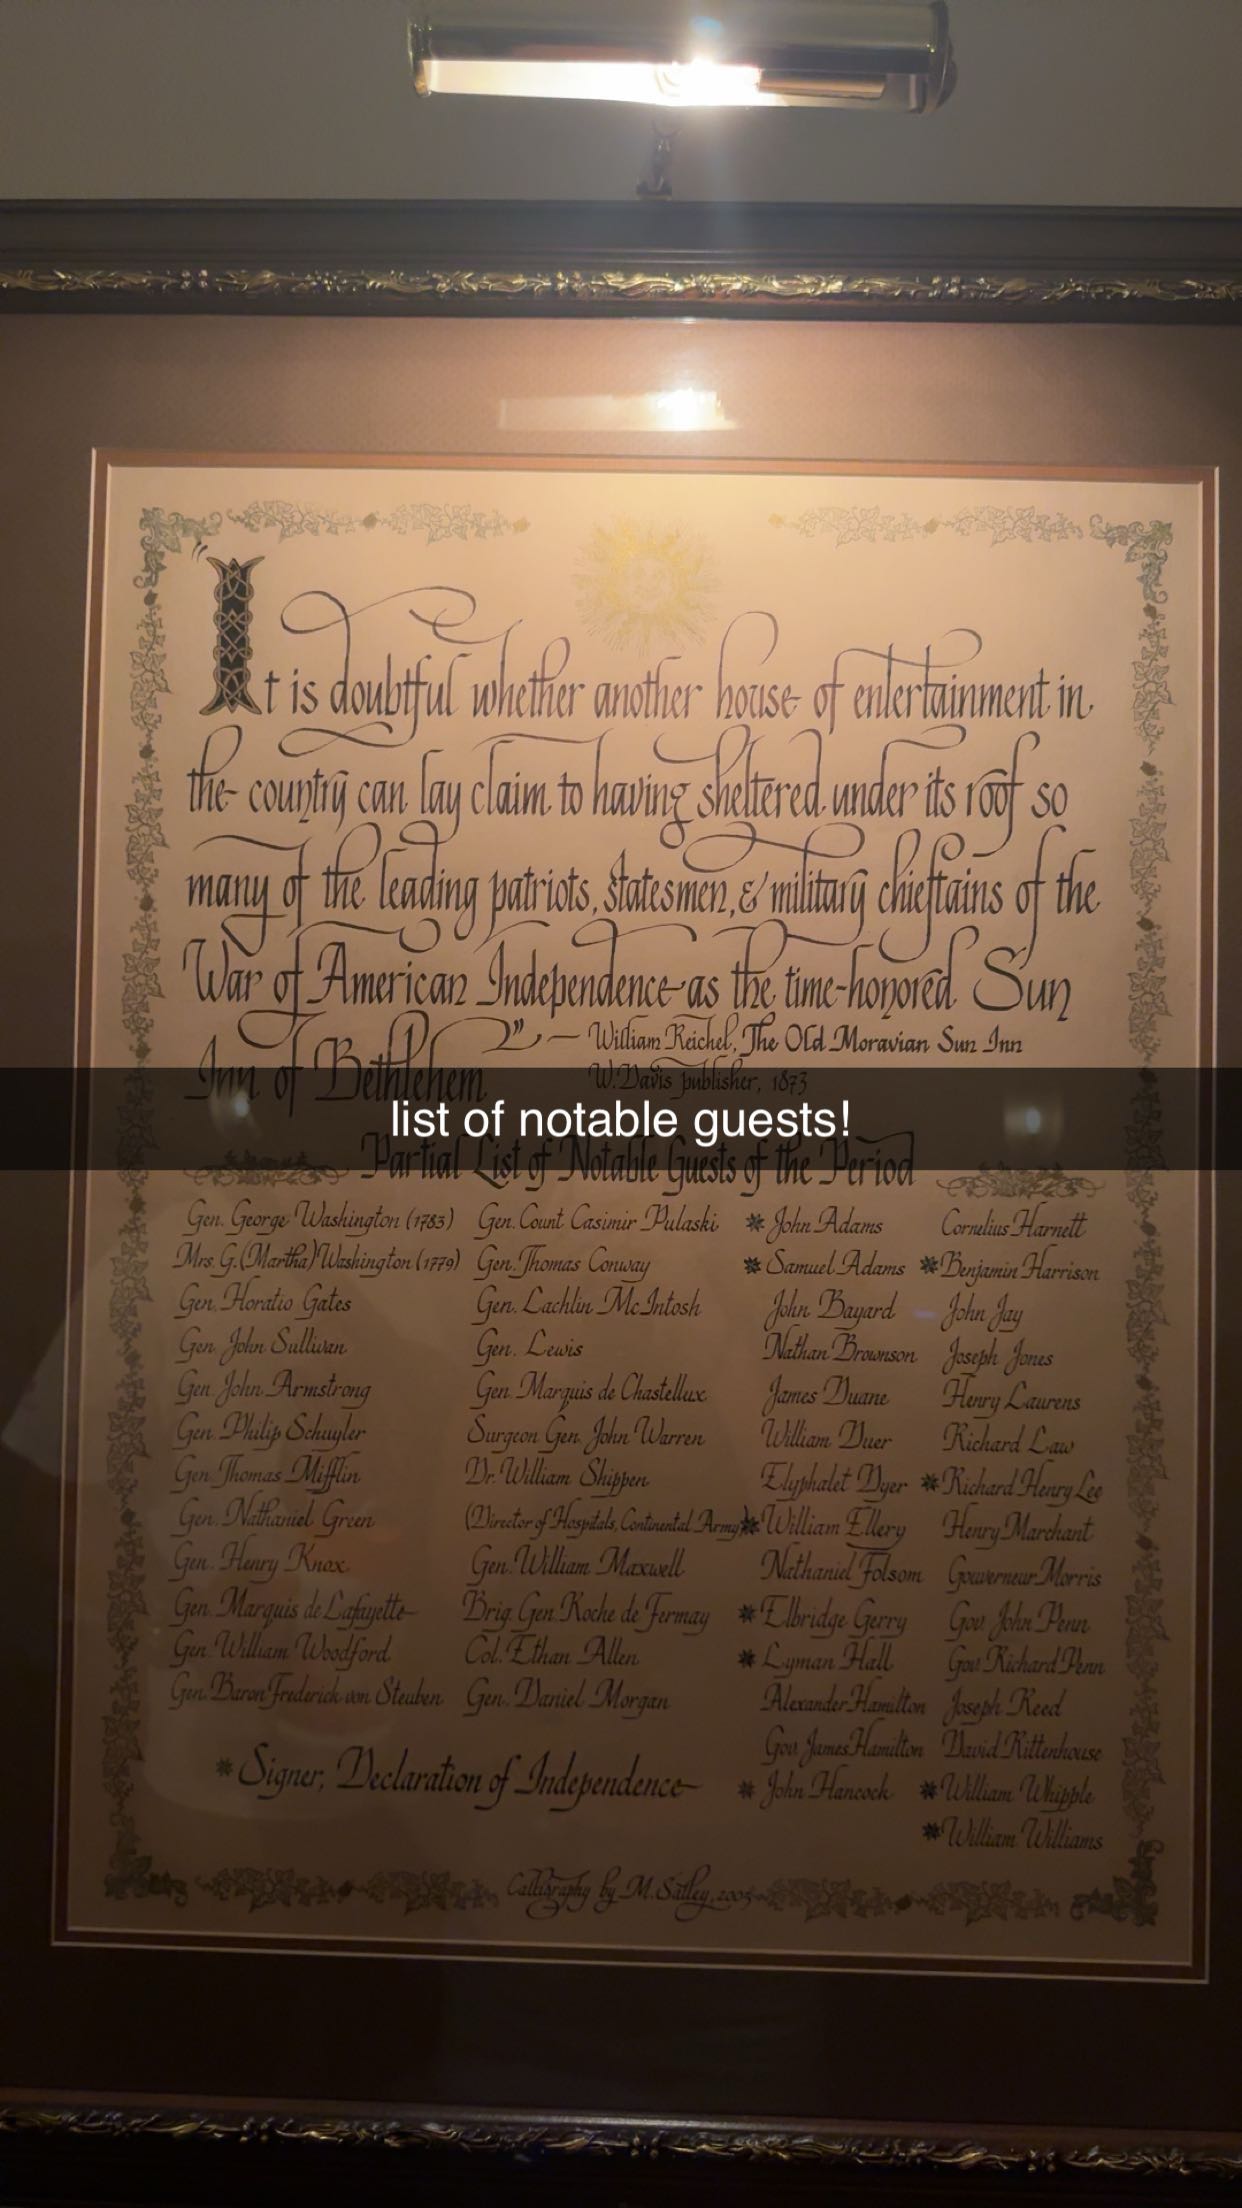 "It is doubtful whether another house of entertainment in
the country can lay claim to having sheltered under its roof so
many of the leading patriots, statesmen, & military chieftains of the
War of American Independence as the time-honored Sun
Inn of Bethlehem."
— William Reichel, The Old Moravian Sun Inn
W. Davis publisher, 1873
list of notable guests!
Partial List of Notable Guests of the Period
Gen. George Washington (1783)
Mrs. G. (Martha) Washington (1779)
Gen. Horatio Gates
Gen. John Sullivan
Gen. John Armstrong
Gen. Philip Schuyler
Gen. Thomas Mifflin
Gen. Nathaniel Green
Gen. Henry Knox
Gen. Marquis de Lafayette
Gen. William Woodford
Gen. Baron Frederick von Steuben
Gen. Count Casimir Pulaski
Gen. Thomas Conway
Gen. Lachlin McIntosh
Gen. Lewis
Gen. Marquis de Chastellux
Surgeon Gen. John Warren
Dr. William Shippen
(Director of Hospitals, Continental Army)
Gen. William Maxwell
Brig. Gen. Roche de Fermay
Col. Ethan Allen
Gen. Daniel Morgan
* John Adams
* Samuel Adams
John Bayard
Nathan Brownson
James Duane
William Duer
Elyphalet Dyer
* William Ellery
Nathaniel Folsom
* Elbridge Gerry
* Lyman Hall
Alexander Hamilton
Gov. James Hamilton
* John Hancock
Cornelius Harnett
* Benjamin Harrison
John Jay
Joseph Jones
Henry Laurens
Richard Law
* Richard Henry Lee
Henry Marchant
Gouverneur Morris
Gov. John Penn
Gov. Richard Penn
Joseph Reed
David Rittenhouse
* William Whipple
* William Williams
* Signer, Declaration of Independence
Calligraphy by M. Salley, 2005